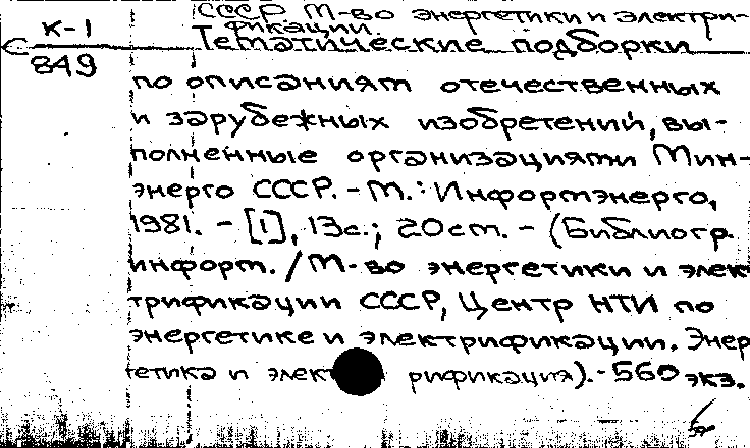 СССР. М-во энергетики и электри-
фикации.
К-1
849
Тематические подборки
по описаниям отечественных
и зарубежных изобретений, вы-
полненные организациями Мин-
энерго СССР. - М.: Информэнерго,
1981. - [1], 13с.; 20см. - (Библиогр.
информ. / М-во энергетики и элек
трификации СССР, Центр НТИ по
энергетике и электрификации. Энер
гетика и элект рификация). - 560 экз.